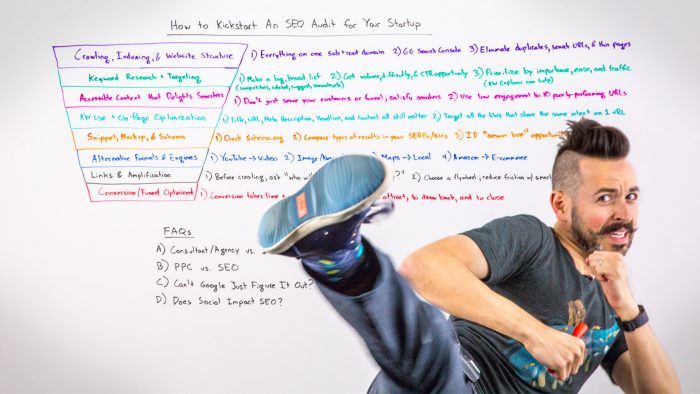 How to Kickstart An SEO Audit for Your Startup
Crawling, Indexing, & Website Structure 1) Everything on one sub + root domain 2) GG Search Console 3) Eliminate duplicates, search URLs, & thin pages
Keyword Research + Targeting 1) Make a big, broad list 2) Get volume, difficulty, & CTR opportunity 3) Prioritize by importance, ease, and traffic
(competitors, related, suggest, (KW Explorer can help)
Accessible Content that Delights Searchers 1) Don't just serve your customers or funnel; satisfy searchers 2) Use low engagement to ID poorly-performing URLs
KW Use + On-Page Optimization 1) Title, URL, Meta Description, Headline, and Content all still matter 2) Target all the KWs that share the same intent on 1 URL
Snippet, Markup, & Schema 1) Check Schema.org 2) Compare types of results in your SERPs/KWs 3) ID "answer box"
Alternative Formats & Engines 1) YouTube → Video 2) Image/ Maps → Local 4) Amazon → E-commerce
Links & Amplification 1) Before creating, ask "who ?" 2) Choose a flywheel; reduce friction w/
Conversion/Funnel Optimized 1) Conversion takes time + attract, to draw back, and to close
FAQs
A) Consultant/Agency vs.
B) PPC vs. SEO
C) Can't Google Just Figure It Out?
D) Does Social Impact SEO?